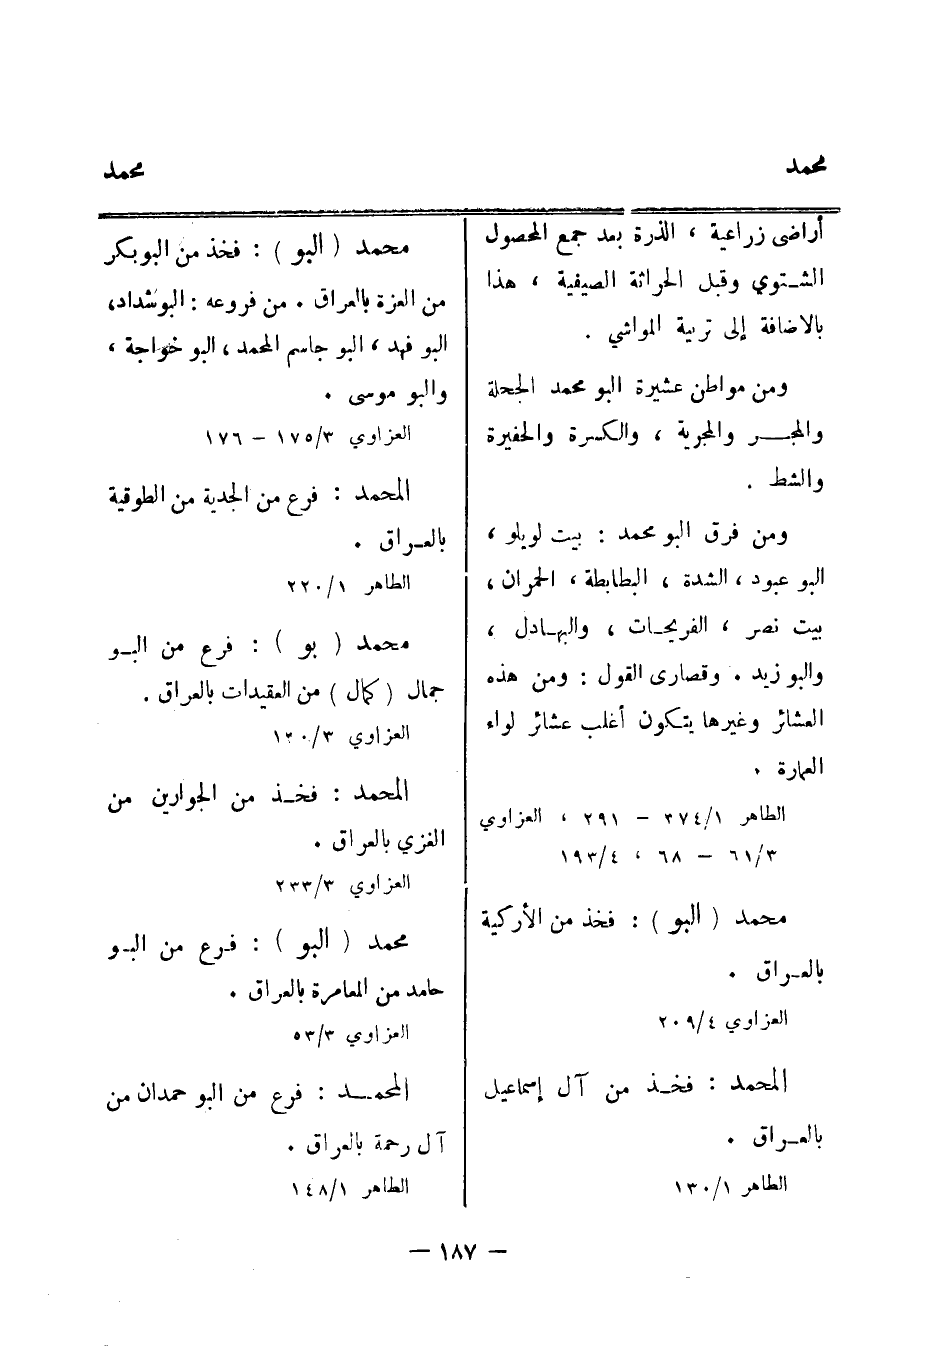 محمد
محمد
أراضى زراعية ، الذرة بعد جمع المحصول
الشـتوي وقبل الحراثة الصيفية ، هذا
بالاضافة إلى تربية المواشي .
ومن مواطن عشيرة البو محمد الجحلة
والمجـر والمجرية ، والكسرة والحفيرة
والشط .
ومن فرق البو محمد : بيت لويلو ،
البو عبود ، الشدة ، البطابطة ، الحمران ،
بيت نصر ، الفريجـات ، والبهـادل ،
والبو زيد . وقصارى القول : ومن هذه
العشائر وغيرها يتكون أغلب عشائر لواء
العمارة .
الطاهر ٢٧٤/١ – ٢٩١ ، العزاوي
٦١/٣ – ٦٨ ، ١٩٣/٤
محمد ( البو ) : فخذ من الأركية
بالعـراق .
العزاوي ٢٠٩/٤
المحمد : فخـذ من آل إسماعيل
بالعـراق .
الطاهر ١٣٠/١
محمد ( البو ) : فخذ من البوبكر
من العزة بالعراق . من فروعه : البوشداد،
البو فهد ، البو جاسم المحمد ، البو خواجة ،
والبو موسى .
العزاوي ١٧٥/٣ – ١٧٦
المحمد : فرع من الجدية من الطوقية
بالعـراق .
الطاهر ٢٢٠/١
محمد ( بو ) : فرع من البـو
جمال ( كمال ) من العقيدات بالعراق .
العزاوي
المحمد : فخـذ من الجوارين من
الغزي بالعراق .
العزاوي ٢٣٣/٣
محمد ( البو ) : فـرع من البـو
حامد من المعامرة بالعراق .
العزاوي ٥٣/٣
المحمـد : فرع من البو حمدان من
آل رحمة بالعراق .
الطاهر ١٤٨/١
– ١٨٧ –